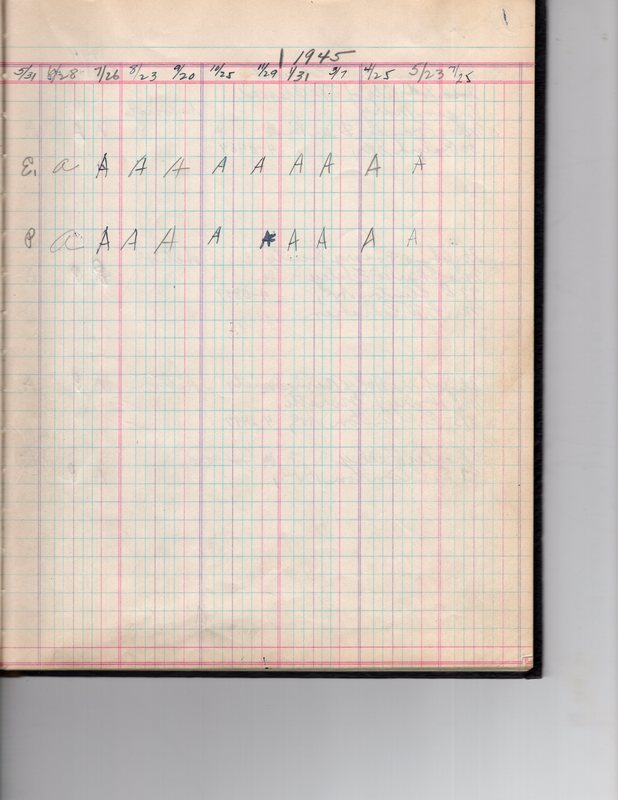 1
1945
5/31 6/28 7/26 8/23 9/20 10/25 11/29 1/31 3/7 4/25 5/23 7/25
E, a A A A A A A A A A
P a A A A A A A A A A